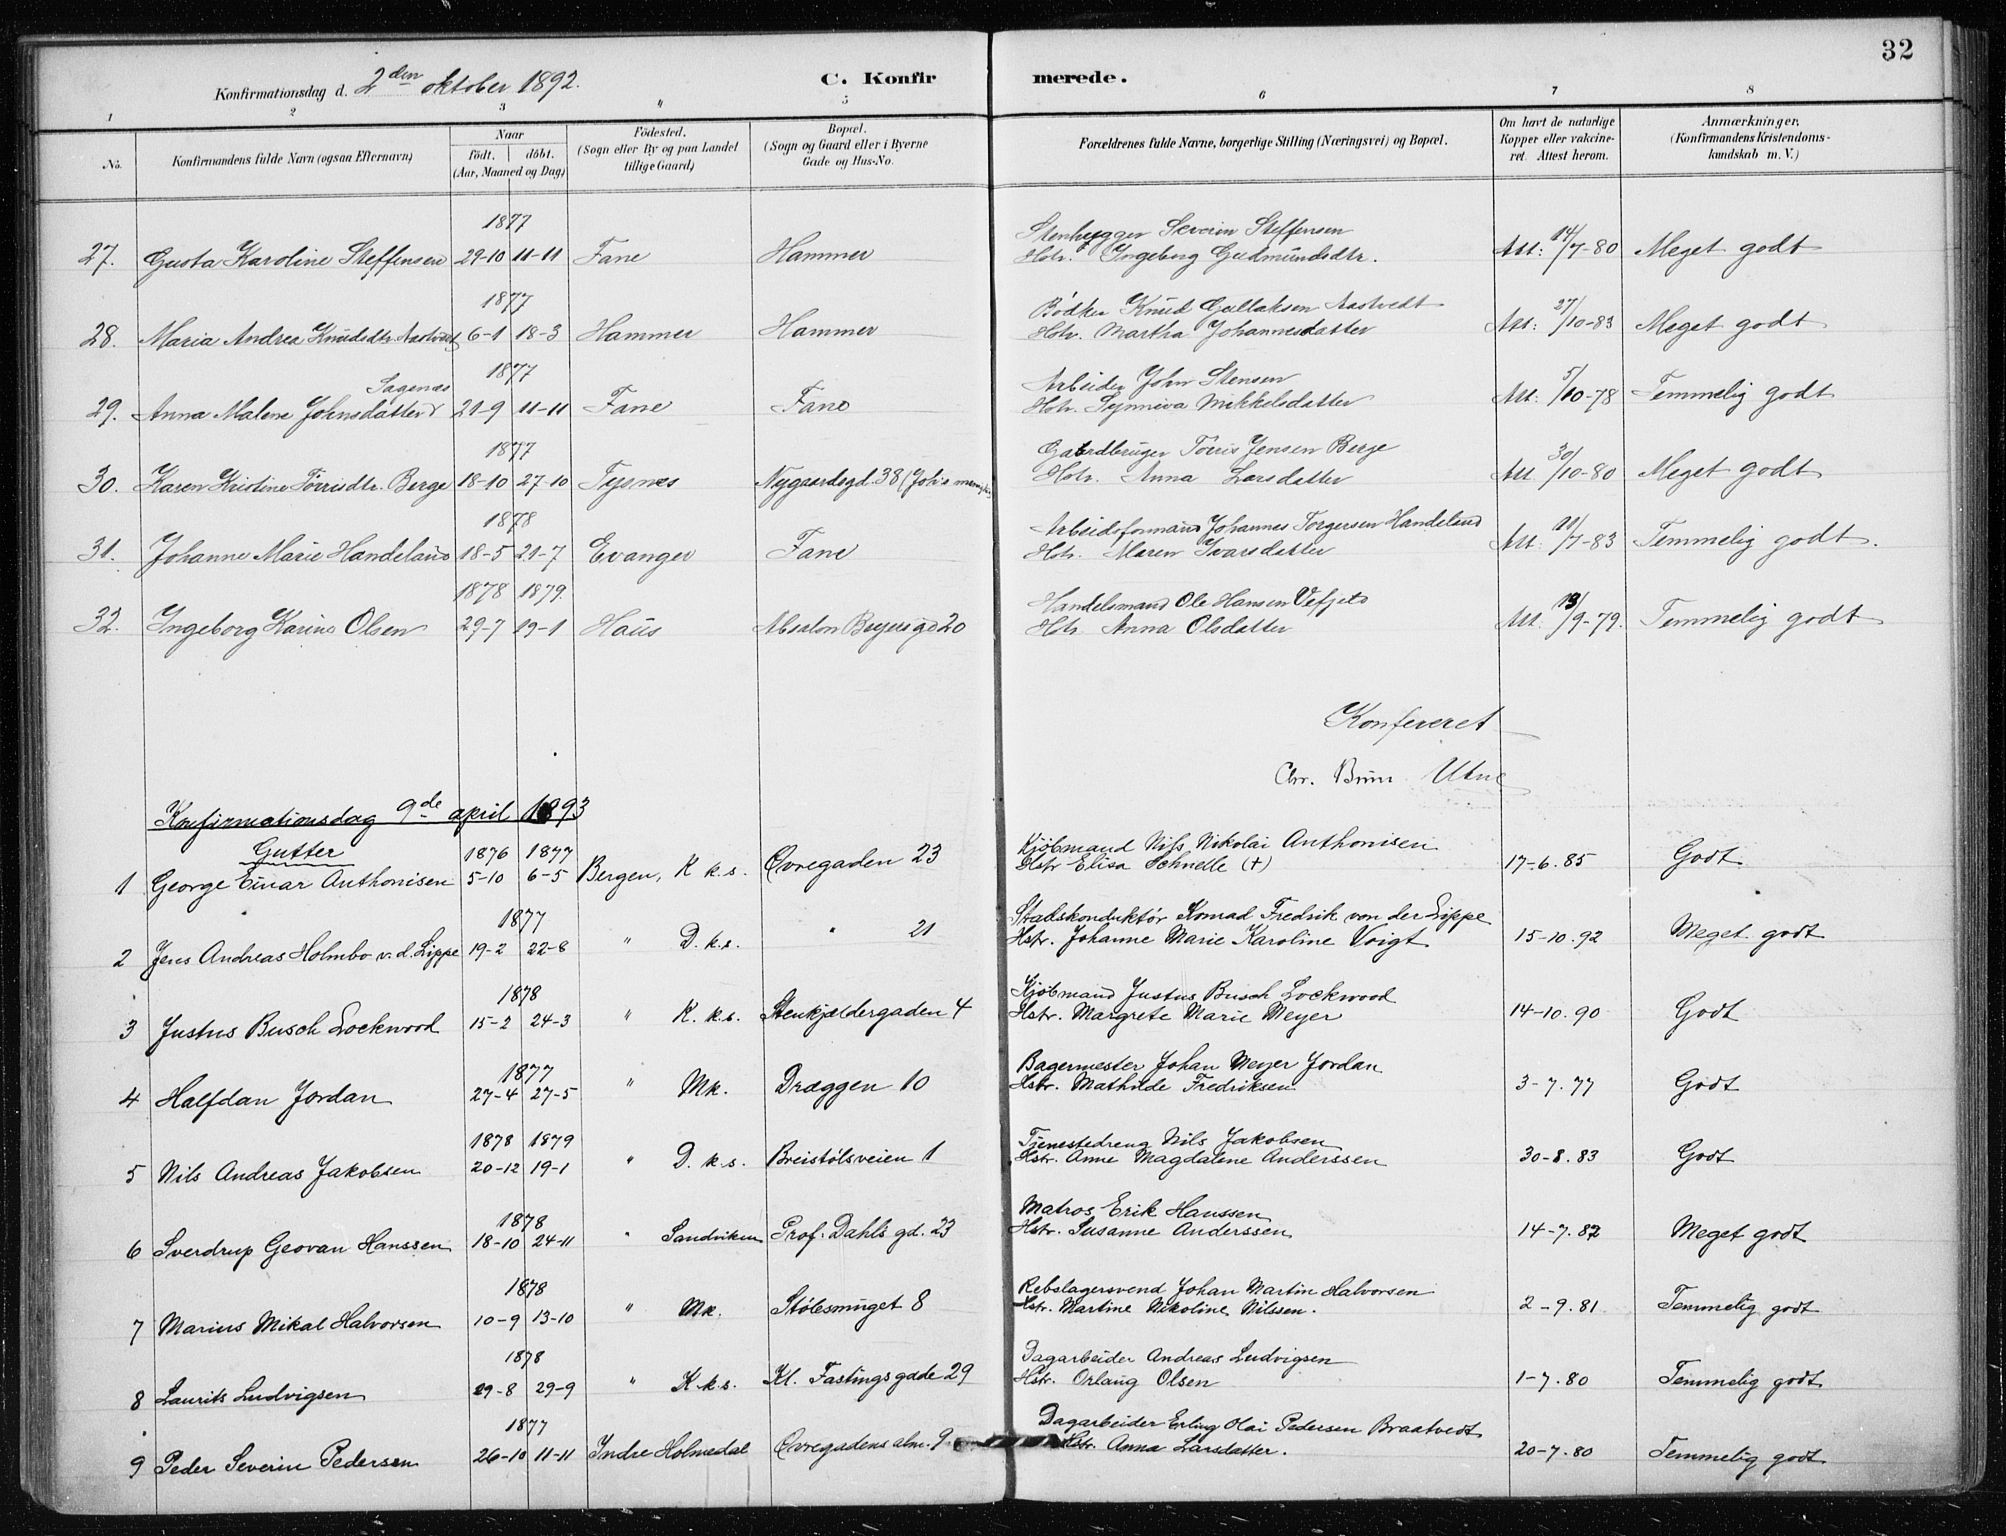 32
Konfirmationsdag d. 2den oktober 1892.
C. Konfirmerede.
1 2 3 4 5 6 7 8
No.
Konfirmandens fulde Navn (ogsaa Efternavn)
Naar
födt. | döbt.
(Aar, Maaned og Dag)
Födested.
(Sogn eller By og paa Landet
tillige Gaard)
Bopæl.
(Sogn og Gaard eller i Byerne
Gade og Hus-No.
Forældrenes fulde Navne, borgerlige Stilling (Næringsvei) og Bopæl.
Om havt de naturlige
Kopper eller vakcine-
ret. Attest herom.
Anmærkninger,
(Konfirmandens Kristendoms-
kundskab m. V.)
1877 Stenhygger Severin Steffensen
27. Gusta Karoline Steffensen 29-10 11-11 Fane Hammer Hstr. Ingeborg Gudmundsdtr. Att: 14/7-80 Meget godt
1877 Bödker Knud Gullaksen Aastvedt
28. Maria Andrea Knudsdtr. Aastvedt 6-1 18-3 Hammer Hammer Hstr. Martha Johannesdatter Att: 27/10-83 Meget godt
Sagenæs 1877 Arbeider John Stensen
29. Anna Malene Johnsdatter 21-9 11-11 Fane Fane Hstr. Synneva Mikkelsdatter Att: 5/10-78 Temmelig godt
1877 Gaardbruger Törris Jensen Berge
30. Karen Kristine Törrisdtr. Berge 18-10 27-10 Tysnes Nygaardsgd. 38 Hstr. Anna Larsdatter Att 30/10-80 Meget godt
1878 Arbeidsformand Johannes Torgersen Handeland
31. Johanne Marie Handeland 18-5 21-7 Evanger Fane Hstr. Maren Ivarsdatter Att. 11/7-83 Temmelig godt.
1878 1879. Handelsmand Ole Hansen
32. Ingeborg Karine Olsen 29-7 19-1 Haus Absalon Beyersgd 20 Hstr. Anna Olsdatter Att. 13/9-79. Temmelig godt
Konfereret
Chr. Brun Utne
Konfirmationsdag 9de april 1893
Gutter 1876 1877 Kjöbmand Nils Nikolai Anthonisen
1 George Einar Anthonisen 5-10 6-5 Bergen, K k.s. Øvregaden 23 Hstr Elisa Schnelle (+) 17-6.85 Godt
1877 Stadskonduktör Konrad Fredrik von der Lippe
2 Jens Andreas Holmbo v. d. Lippe 19-2 22-8 " D. k.s. " 21 Hstr. Johanne Marie Karoline Voigt 15-10.92 Meget godt
1878 Kjöbmand Justus Busch Lockwood
3 Justus Busch Lockwood 15-2 24-3 " K. k.s. Stenkjeldergaden 4 Hstr. Margrete Marie Meyer 14-10.90 Godt
1877 Bagermester Johan Meyer Jordan
4 Halfdan Jordan 27-4 27-5 " Mk. Dræggen 10 Hstr. Mathilde Fredriksen 3-7.77 Godt
1878 1879 Tjenestedreng Nils Jakobsen
5 Nils Andreas Jakobsen 20-12 19-1 " D. k.s. Breistölsveien 1 Hstr. Anne Magdalene Anderssen 30-8.83 Godt
1878 Matros Erik Hanssen
6 Sverdrup Geovan Hanssen 18-10 24-11 " Sandviken Prof. Dahls gd. 23 Hstr. Susanne Anderssen 14-7.82 Meget godt
1878 Rebslagersvend Johan Martin Halvorsen
7 Marius Mikal Halvorsen 10-9 13-10 " Mk. Stölesmuget 8 Hstr. Martine Nikoline Nilssen. 2-9.81 Temmelig godt
1878 Dagarbeider Andreas Ludvigsen
8 Laurits Ludvigsen 29-8 29-9 " K.k.s. Kl. Fastings gade 29 Hstr. Orlaug Olsen 1-7.80 Temmelig godt
1877 Dagarbeider Erling Olai Pedersen Braatvedt
9 Peder Severin Pedersen 26-10 11-11 Indre Holmedal Øvregadens alm. 9 Hstr. Anna Larsdatter. 20-7.80 Temmelig godt